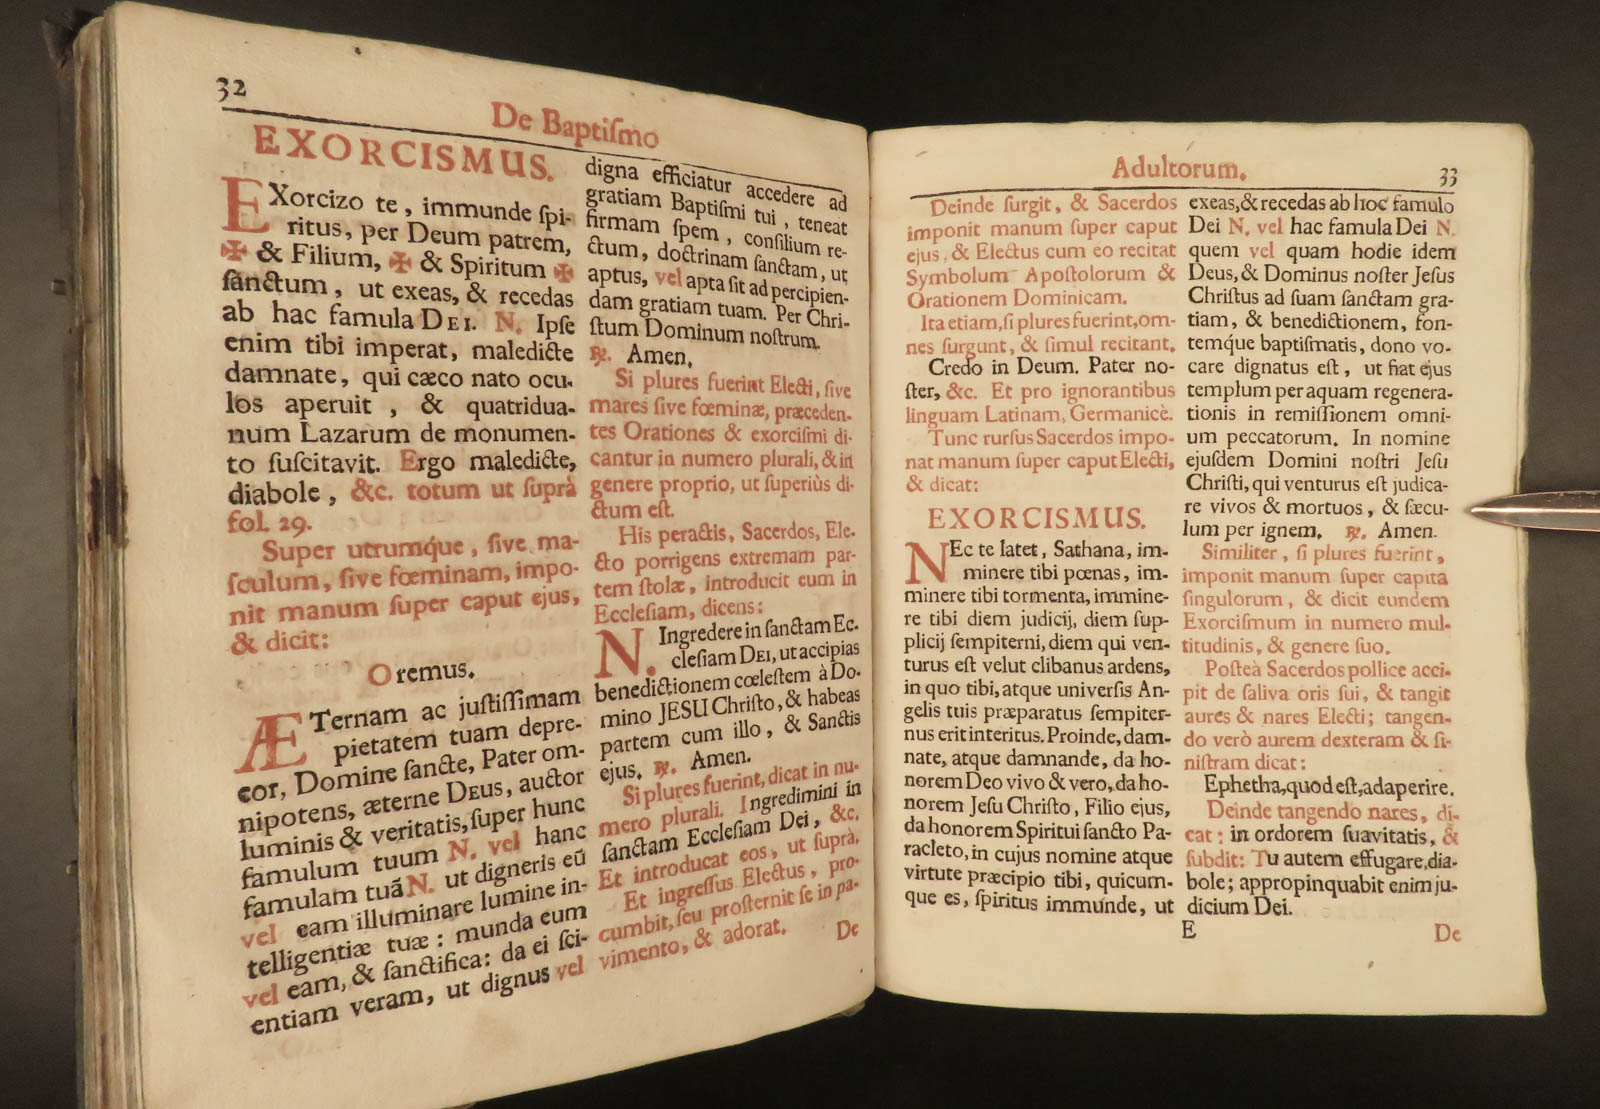 32
De Baptiſmo
EXORCISMUS.
EXorcizo te, immunde ſpi-
ritus, per Deum patrem,
✠ & Filium, ✠ & Spiritum ✠
ſanctum, ut exeas, & recedas
ab hac famula DEI. N. Ipſe
enim tibi imperat, maledicte
damnate, qui cæco nato ocu-
los aperuit, & quatridua-
num Lazarum de monumen-
to ſuſcitavit. Ergo maledicte,
diabole, &c. totum ut ſuprà
fol. 29.
Super utrumq́ue, ſive ma-
ſculum, ſive fœminam, impo-
nit manum ſuper caput ejus,
& dicit:
Oremus.
ÆTernam ac juſtiſſimam
pietatem tuam depre-
cor, Domine ſancte, Pater om-
nipotens, æterne DEUS, auctor
luminis & veritatis, ſuper hunc
famulum tuum N. vel hanc
famulam tuã N. ut digneris eũ
vel eam illuminare lumine in-
telligentiæ tuæ: munda eum
vel eam, & ſanctifica: da ei ſci-
entiam veram, ut dignus vel
digna efficiatur accedere ad
gratiam Baptiſmi tui, teneat
firmam ſpem, conſilium re-
ctum, doctrinam ſanctam, ut
aptus, vel apta ſit ad percipien-
dam gratiam tuam. Per Chri-
ſtum Dominum noſtrum.
℟. Amen.
Si plures fuerint Electi, ſive
mares ſive fœminæ, præceden-
tes Orationes & exorciſmi di-
cantur in numero plurali, & in
genere proprio, ut ſuperiùs di-
ctum eſt.
His peractis, Sacerdos, Ele-
cto porrigens extremam par-
tem ſtolæ, introducit eum in
Eccleſiam, dicens:
N. Ingredere in ſanctam Ec-
cleſiam DEI, ut accipias
benedictionem cœleſtem à Do-
mino JESU Chriſto, & habeas
partem cum illo, & Sanctis
ejus. ℟. Amen.
Si plures fuerint, dicat in nu-
mero plurali. Ingredimini in
ſanctam Eccleſiam Dei, &c.
Et introducat eos, ut ſuprà.
Et ingreſſus Electus, pro-
cumbit, ſeu proſternit ſe in pa-
vimento, & adorat.
De
Adultorum.
33
Deinde ſurgit, & Sacerdos
imponit manum ſuper caput
ejus, & Electus cum eo recitat
Symbolum Apoſtolorum &
Orationem Dominicam.
Ita etiam, ſi plures fuerint, om-
nes ſurgunt, & ſimul recitant.
Credo in Deum. Pater no-
ſter, &c. Et pro ignorantibus
linguam Latinam, Germanicè.
Tunc rurſus Sacerdos impo-
nat manum ſuper caput Electi,
& dicat:
EXORCISMUS.
NEc te latet, Sathana, im-
minere tibi pœnas, im-
minere tibi tormenta, immine-
re tibi diem judicij, diem ſup-
plicij ſempiterni, diem qui ven-
turus eſt velut clibanus ardens,
in quo tibi, atque univerſis An-
gelis tuis præparatus ſempiter-
nus erit interitus. Proinde, dam-
nate, atque damnande, da ho-
norem Deo vivo & vero, da ho-
norem Jeſu Chriſto, Filio ejus,
da honorem Spiritui ſancto Pa-
racleto, in cujus nomine atque
virtute præcipio tibi, quicum-
que es, ſpiritus immunde, ut
exeas, & recedas ab hoc famulo
Dei N. vel hac famula Dei N.
quem vel quam hodie idem
Deus, & Dominus noſter Jeſus
Chriſtus ad ſuam ſanctam gra-
tiam, & benedictionem, fon-
temque baptiſmatis, dono vo-
care dignatus eſt, ut fiat ejus
templum per aquam regenera-
tionis in remiſſionem omni-
um peccatorum. In nomine
ejuſdem Domini noſtri Jeſu
Chriſti, qui venturus eſt judica-
re vivos & mortuos, & ſæcu-
lum per ignem. ℟. Amen.
Similiter, ſi plures fuerint,
imponit manum ſuper capita
ſingulorum, & dicit eundem
Exorciſmum in numero mul-
titudinis, & genere ſuo.
Poſteà Sacerdos pollice acci-
pit de ſaliva oris ſui, & tangit
aures & nares Electi; tangen-
do verò aurem dexteram & ſi-
niſtram dicat:
Ephetha, quod eſt, adaperire.
Deinde tangendo nares, di-
cat: in odorem ſuavitatis, &
ſubdit: Tu autem effugare, dia-
bole; appropinquabit enim ju-
dicium Dei.
E
De